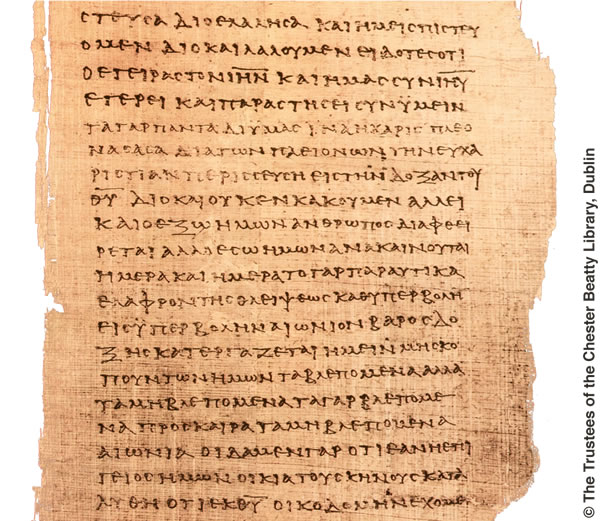 ϹΤΕΥϹΑ ΔΙΟ ΕΛΑΛΗϹΑ ΚΑΙ ΗΜΕΙϹ ΠΙϹΤΕΥ
ΟΜΕΝ ΔΙΟ ΚΑΙ ΛΑΛΟΥΜΕΝ ΕΙΔΟΤΕϹ ΟΤΙ
Ο ΕΓΕΙΡΑϹ ΤΟΝ Ι̅Η̅Ν̅ ΚΑΙ ΗΜΑϹ ϹΥΝ Ι̅Η̅Υ̅
ΕΓΕΡΕΙ ΚΑΙ ΠΑΡΑϹΤΗϹΕΙ ϹΥΝ ΥΜΕΙΝ
ΤΑ ΓΑΡ ΠΑΝΤΑ ΔΙ ΥΜΑϹ ΙΝΑ Η ΧΑΡΙϹ ΠΛΕΟ
ΝΑϹΑϹΑ ΔΙΑ ΤΩΝ ΠΛΕΙΟΝΩΝ ΤΗΝ ΕΥΧΑ
ΡΙϹΤΙΑΝ ΠΕΡΙϹϹΕΥϹΗ ΕΙϹ ΤΗΝ ΔΟΞΑΝ ΤΟΥ
Θ̅Υ̅ ΔΙΟ ΚΑΙ ΟΥΚ ΕΝΚΑΚΟΥΜΕΝ ΑΛΛ ΕΙ
ΚΑΙ Ο ΕΞΩ ΗΜΩΝ ΑΝΘΡΩΠΟϹ ΔΙΑΦΘΕΙ
ΡΕΤΑΙ ΑΛΛ Ο ΕϹΩ ΗΜΩΝ ΑΝΑΚΑΙΝΟΥΤΑΙ
ΗΜΕΡΑ ΚΑΙ ΗΜΕΡΑ ΤΟ ΓΑΡ ΠΑΡΑΥΤΙΚΑ
ΕΛΑΦΡΟΝ ΤΗϹ ΘΛΕΙΨΕΩϹ ΚΑΘ ΥΠΕΡΒΟΛΗ
ΕΙϹ ΥΠΕΡΒΟΛΗΝ ΑΙΩΝΙΟΝ ΒΑΡΟϹ ΔΟ
ΞΗϹ ΚΑΤΕΡΓΑΖΕΤΑΙ ΗΜΕΙΝ ΜΗ ϹΚΟ
ΠΟΥΝΤΩΝ ΗΜΩΝ ΤΑ ΒΛΕΠΟΜΕΝΑ ΑΛΛΑ
ΤΑ ΜΗ ΒΛΕΠΟΜΕΝΑ ΤΑ ΓΑΡ ΒΛΕΠΟΜΕ
ΝΑ ΠΡΟϹΚΑΙΡΑ ΤΑ ΜΗ ΒΛΕΠΟΜΕΝΑ
ΑΙΩΝΙΑ ΟΙΔΑΜΕΝ ΓΑΡ ΟΤΙ ΕΑΝ Η ΕΠΙ
ΓΕΙΟϹ ΗΜΩΝ ΟΙΚΙΑ ΤΟΥ ϹΚΗΝΟΥϹ ΚΑΤΑ
ΛΥΘΗ ΟΤΙ ΕΚ Θ̅Υ̅ ΟΙΚΟΔΟΜΗΝ ΕΧΟΜΕ
© The Trustees of the Chester Beatty Library, Dublin